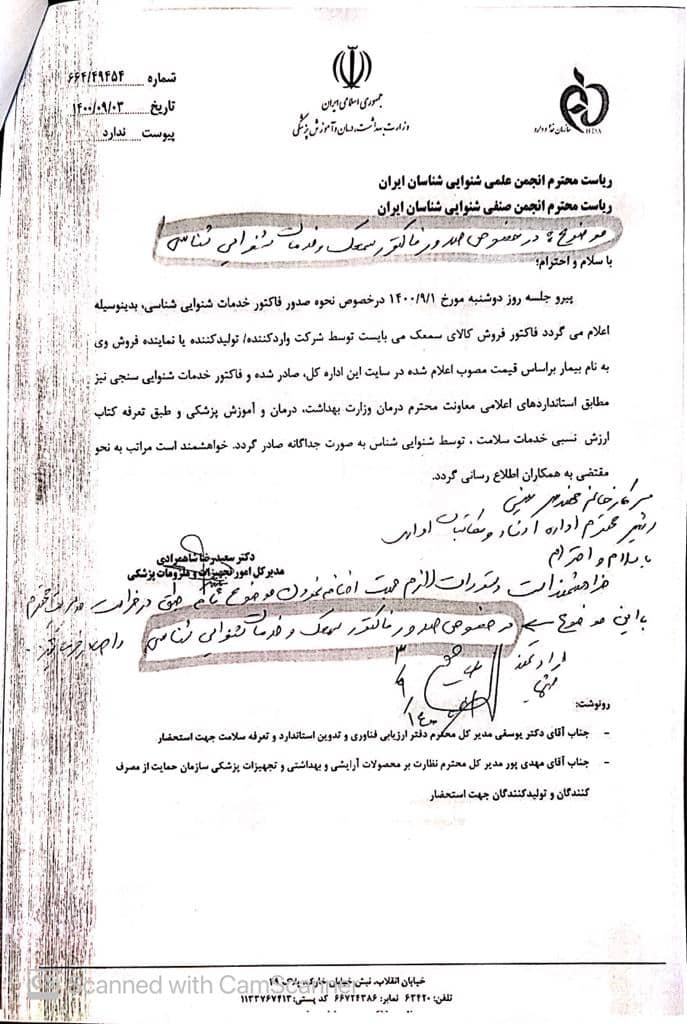 جمهوری اسلامی ایران
وزارت بهداشت، درمان و آموزش پزشکی
سازمان غذا و دارو
IFDA
شماره ۶۶۴/۴۹۴۵۴
تاریخ ۱۴۰۰/۰۹/۰۳
پیوست ندارد
ریاست محترم انجمن علمی شنوایی شناسان ایران
ریاست محترم انجمن صنفی شنوایی شناسان ایران
موضوع: در خصوص صدور فاکتور سمعک و خدمات شنوایی شناسی
با سلام و احترام؛
پیرو جلسه روز دوشنبه مورخ ۱۴۰۰/۹/۱ درخصوص نحوه صدور فاکتور خدمات شنوایی شناسی، بدینوسیله
اعلام می گردد فاکتور فروش کالای سمعک می بایست توسط شرکت واردکننده/ تولیدکننده یا نماینده فروش وی
به نام بیمار براساس قیمت مصوب اعلام شده در سایت این اداره کل، صادر شده و فاکتور خدمات شنوایی سنجی نیز
مطابق استانداردهای اعلامی معاونت محترم درمان وزارت بهداشت، درمان و آموزش پزشکی و طبق تعرفه کتاب
ارزش نسبی خدمات سلامت ، توسط شنوایی شناس به صورت جداگانه صادر گردد. خواهشمند است مراتب به نحو
مقتضی به همکاران اطلاع رسانی گردد.
سرکار خانم مهندس
رئیس محترم اداره اسناد و مکاتبات اداری
با سلام و احترام
دکتر سعیدرضا شاهمرادی
مدیرکل امور تجهیزات و ملزومات پزشکی
خواهشمند است دستورات لازم جهت اضافه نمودن موضوع نامه طبق درخواست مدیریت محترم
با این موضوع در خصوص صدور فاکتور سمعک و خدمات شنوایی شناسی
۱۴۰۰/۹/۳
رونوشت:
- جناب آقای دکتر یوسفی مدیر کل محترم دفتر ارزیابی فناوری و تدوین استاندارد و تعرفه سلامت جهت استحضار
- جناب آقای مهدی پور مدیر کل محترم نظارت بر محصولات آرایشی و بهداشتی و تجهیزات پزشکی سازمان حمایت از مصرف
کنندگان و تولیدکنندگان جهت استحضار
خیابان انقلاب، نبش خیابان خارک، پلاک ۱۹
تلفن: ۶۳۴۲۰ نمابر: ۶۶۷۲۴۳۸۶ کد پستی: ۱۱۳۳۷۶۷۴۱۳
Scanned with CamScanner